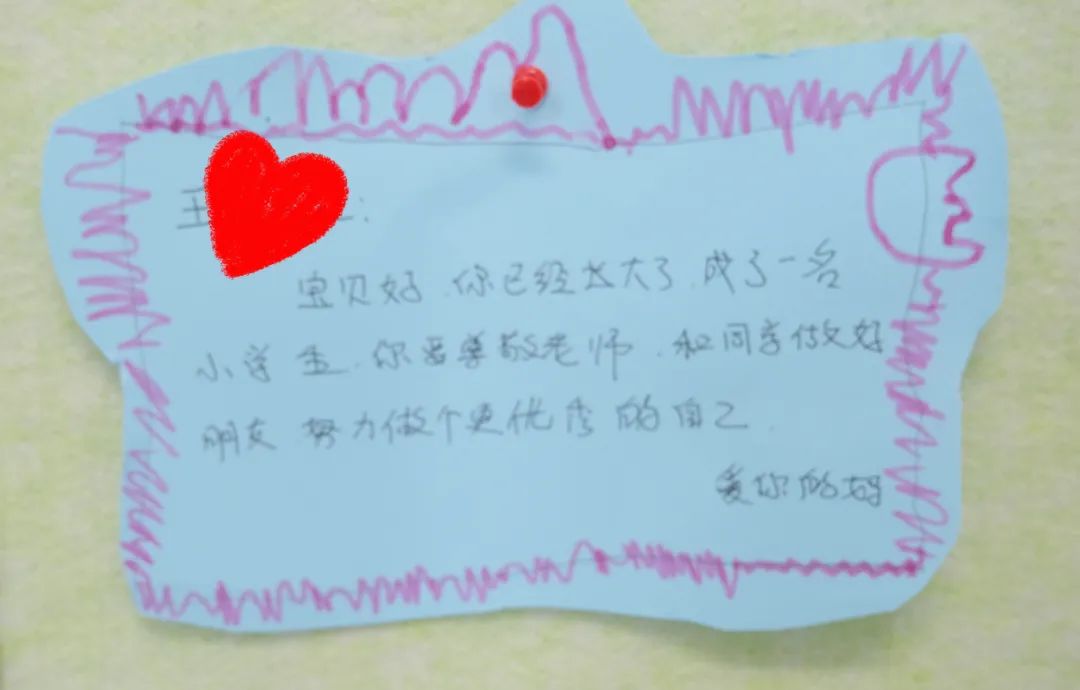 王
宝贝好，你已经长大了，成了一名
小学生，你要尊敬老师，和同学做好
朋友努力做个更优秀的自己．
爱你的妈